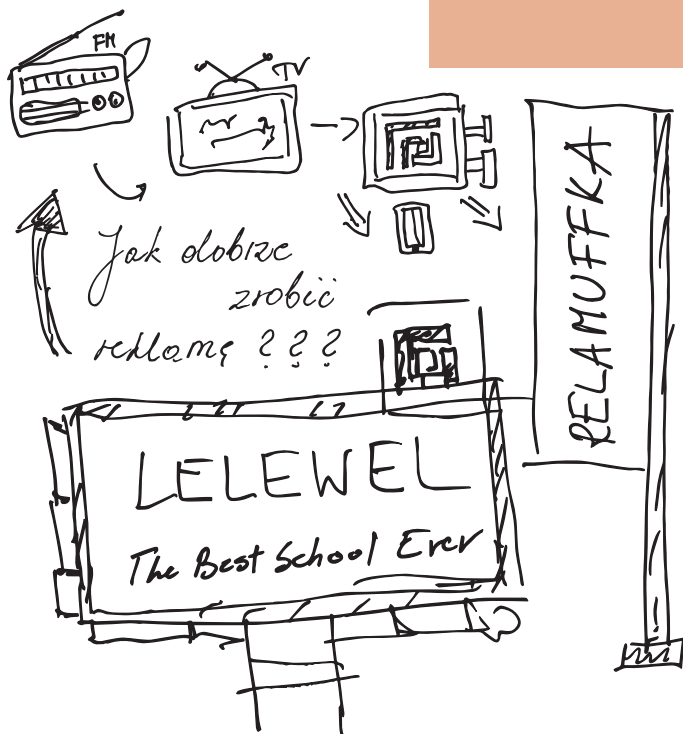 FM
TV
Jak dobrze
zrobić
reklamę ? ? ?
RELAMUFFKA
LELEWEL
The Best School Ever